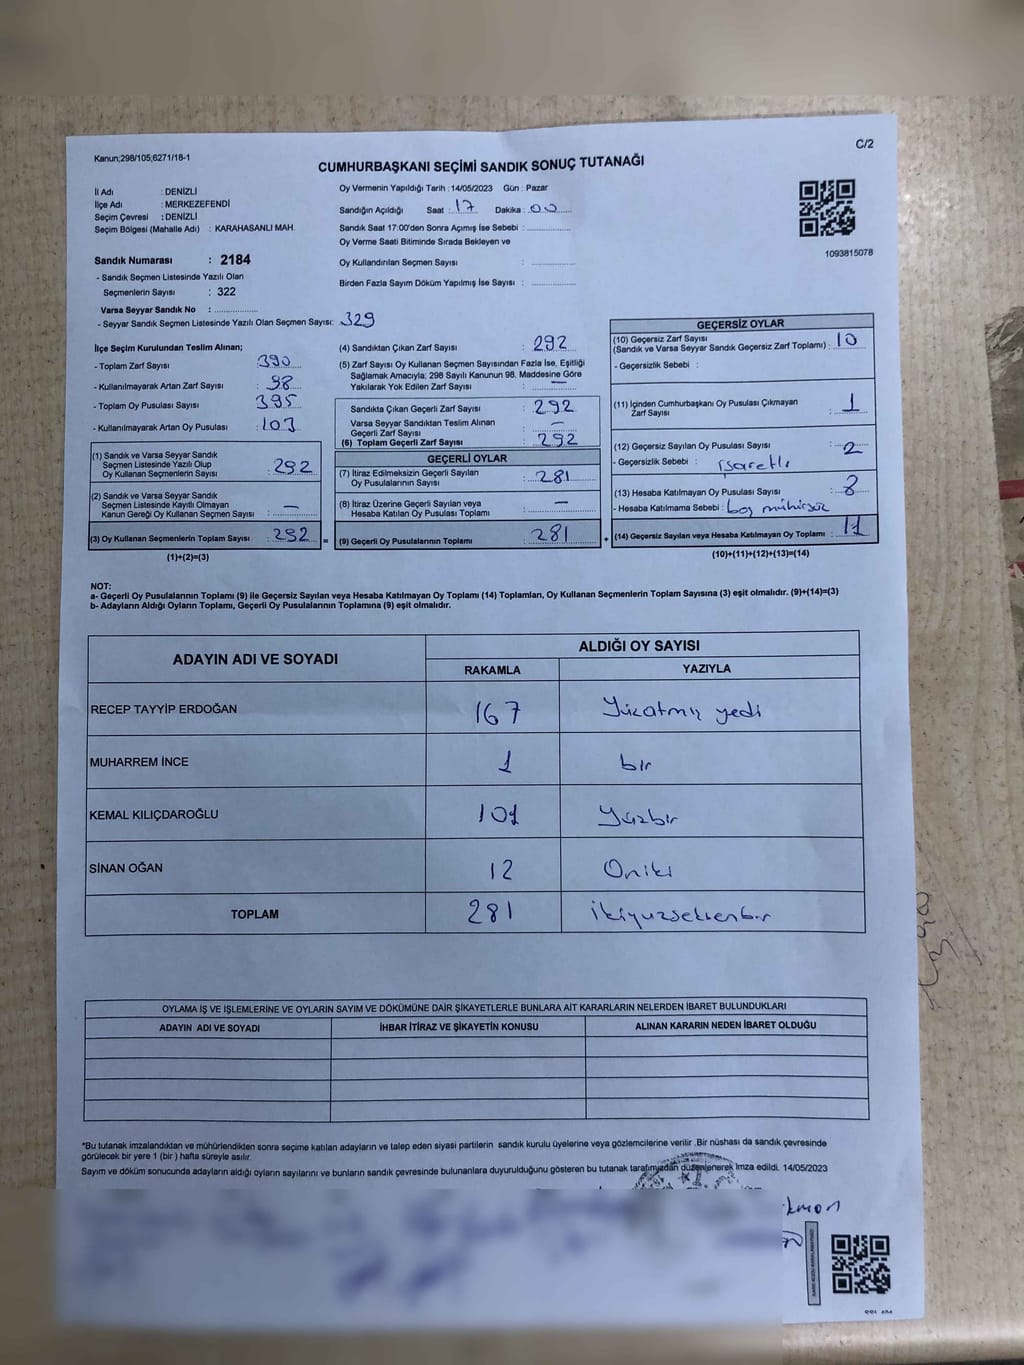 Kanun;298/105;6271/18-1
C/2
CUMHURBAŞKANI SEÇİMİ SANDIK SONUÇ TUTANAĞI
İl Adı : DENİZLİ
İlçe Adı : MERKEZEFENDİ
Seçim Çevresi : DENİZLİ
Seçim Bölgesi (Mahalle Adı) : KARAHASANLI MAH.
Sandık Numarası : 2184
- Sandık Seçmen Listesinde Yazılı Olan
Seçmenlerin Sayısı : 322
Varsa Seyyar Sandık No :
- Seyyar Sandık Seçmen Listesinde Yazılı Olan Seçmen Sayısı: 329
Oy Vermenin Yapıldığı Tarih : 14/05/2023 Gün : Pazar
Sandığın Açıldığı Saat : 17 Dakika : 00
Sandık Saat 17:00'den Sonra Açımış İse Sebebi :
Oy Verme Saati Bitiminde Sırada Bekleyen ve
Oy Kullandırılan Seçmen Sayısı :
Birden Fazla Sayım Döküm Yapılmış İse Sayısı :
1093815078
İlçe Seçim Kurulundan Teslim Alınan;
- Toplam Zarf Sayısı : 390
- Kullanılmayarak Artan Zarf Sayısı : 98
- Toplam Oy Pusulası Sayısı : 395
- Kullanılmayarak Artan Oy Pusulası : 103
(1) Sandık ve Varsa Seyyar Sandık
Seçmen Listesinde Yazılı Olup
Oy Kullanan Seçmenlerin Sayısı : 292
(2) Sandık ve Varsa Seyyar Sandık
Seçmen Listesinde Kayıtlı Olmayan
Kanun Gereği Oy Kullanan Seçmen Sayısı : —
(3) Oy Kullanan Seçmenlerin Toplam Sayısı : 292
(1)+(2)=(3)
(4) Sandıktan Çıkan Zarf Sayısı : 292
(5) Zarf Sayısı Oy Kullanan Seçmen Sayısından Fazla İse, Eşitliği
Sağlamak Amacıyla; 298 Sayılı Kanunun 98. Maddesine Göre
Yakılarak Yok Edilen Zarf Sayısı : —
Sandıkta Çıkan Geçerli Zarf Sayısı : 292
Varsa Seyyar Sandıktan Teslim Alınan
Geçerli Zarf Sayısı : —
(6) Toplam Geçerli Zarf Sayısı : 292
GEÇERLİ OYLAR
(7) İtiraz Edilmeksizin Geçerli Sayılan
Oy Pusulalarının Sayısı : 281
(8) İtiraz Üzerine Geçerli Sayılan veya
Hesaba Katılan Oy Pusulası Toplamı : —
= (9) Geçerli Oy Pusulalarının Toplamı : 281
GEÇERSİZ OYLAR
(10) Geçersiz Zarf Sayısı
(Sandık ve Varsa Seyyar Sandık Geçersiz Zarf Toplamı) : 10
- Geçersizlik Sebebi :
(11) İçinden Cumhurbaşkanı Oy Pusulası Çıkmayan
Zarf Sayısı : 1
(12) Geçersiz Sayılan Oy Pusulası Sayısı : 2
- Geçersizlik Sebebi : işaretli
(13) Hesaba Katılmayan Oy Pusulası Sayısı : 8
- Hesaba Katılmama Sebebi : boş mühürsüz
+ (14) Geçersiz Sayılan veya Hesaba Katılmayan Oy Toplamı : 11
(10)+(11)+(12)+(13)=(14)
NOT:
a- Geçerli Oy Pusulalarının Toplamı (9) ile Geçersiz Sayılan veya Hesaba Katılmayan Oy Toplamı (14) Toplamları, Oy Kullanan Seçmenlerin Toplam Sayısına (3) eşit olmalıdır. (9)+(14)=(3)
b- Adayların Aldığı Oyların Toplamı, Geçerli Oy Pusulalarının Toplamına (9) eşit olmalıdır.
ADAYIN ADI VE SOYADI
ALDIĞI OY SAYISI
RAKAMLA YAZIYLA
RECEP TAYYİP ERDOĞAN 167 Yüzatmış yedi
MUHARREM İNCE 1 bir
KEMAL KILIÇDAROĞLU 101 Yüzbir
SİNAN OĞAN 12 Oniki
TOPLAM 281 ikiyüzseksenbir
OYLAMA İŞ VE İŞLEMLERİNE VE OYLARIN SAYIM VE DÖKÜMÜNE DAİR ŞİKAYETLERLE BUNLARA AİT KARARLARIN NELERDEN İBARET BULUNDUKLARI
ADAYIN ADI VE SOYADI İHBAR İTİRAZ VE ŞİKAYETİN KONUSU ALINAN KARARIN NEDEN İBARET OLDUĞU
*Bu tutanak imzalandıktan ve mühürlendikten sonra seçime katılan adayların ve talep eden siyasi partilerin sandık kurulu üyelerine veya gözlemcilerine verilir .Bir nüshası da sandık çevresinde
görülecek bir yere 1 (bir ) hafta süreyle asılır.
Sayım ve döküm sonucunda adayların aldığı oyların sayılarını ve bunların sandık çevresinde bulunanlara duyurulduğunu gösteren bu tutanak tarafımızdan düzenlenerek imza edildi. 14/05/2023